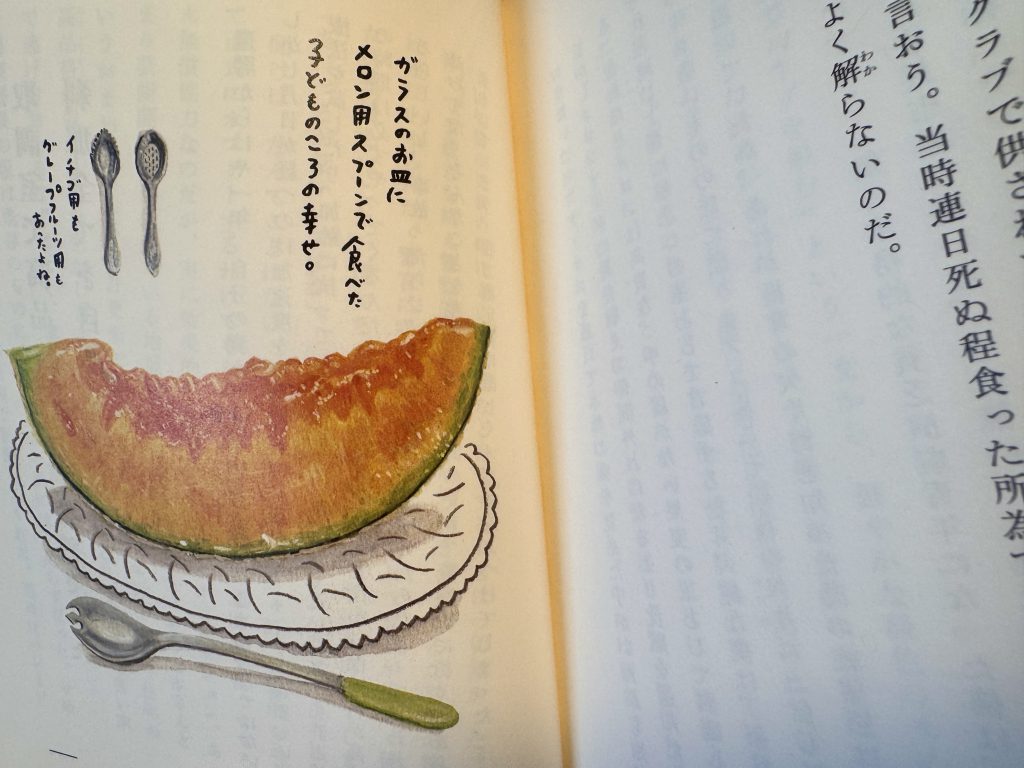 グラブで供され、
言おう。当時連日死ぬ程食った所為で
よく解らないのだ。
わか
ガラスのお皿に
メロン用スプーンで食べた
子どものころの幸せ。
イチゴ用も
グレープフルーツ用も
あったよね。